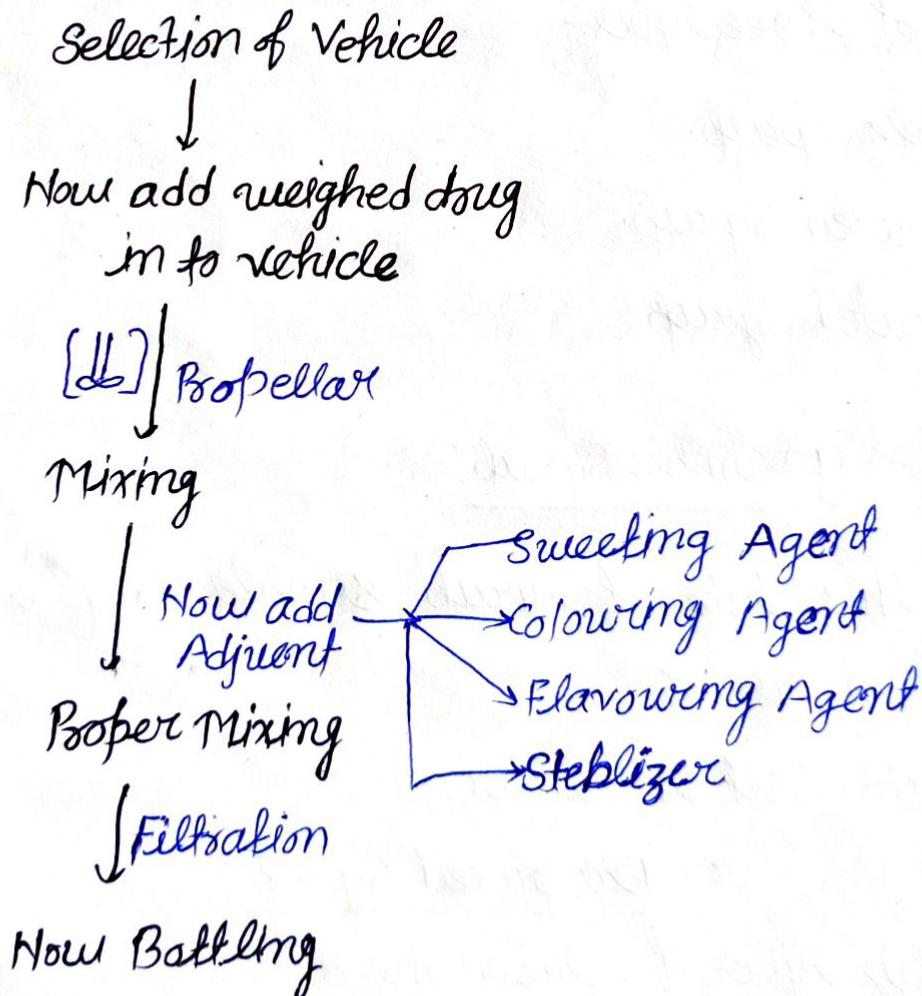 Selection of Vehicle
Now add weighed drug
in to vehicle
Propellar
Mixing
Now add
Adjuent
Sweeting Agent
Colouring Agent
Flavouring Agent
Steblizer
Proper Mixing
Filtration
Now Bottling